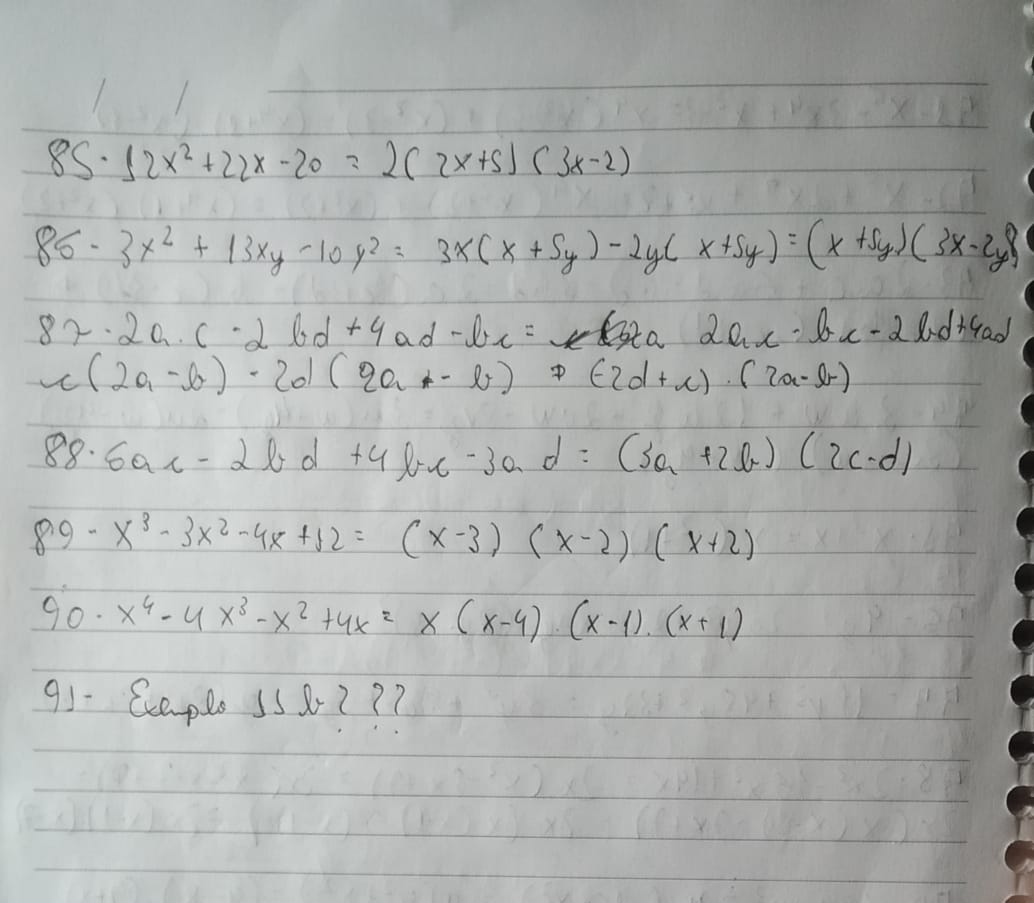 / /
85. 12x² + 22x - 20 = 2(2x+5) (3x-2)
86 - 3x² + 13xy - 10y² = 3x(x + 5y) - 2y(x+5y) = (x+5y)(3x-2y)
87. 2a.c - 2bd + 4ad - bc = 2ac - bc - 2bd+4ad
c(2a-b) - 2d(2a - b) ⇒ (-2d+c).(2a-b)
88. 6ac - 2bd + 4bc - 3ad = (3a + 2b) (2c-d)
89 - x³ - 3x² - 4x + 12 = (x-3) (x-2) (x+2)
90. x⁴ - 4x³ - x² + 4x = x(x-4).(x-1).(x+1)
91- Exemplo 11 b???